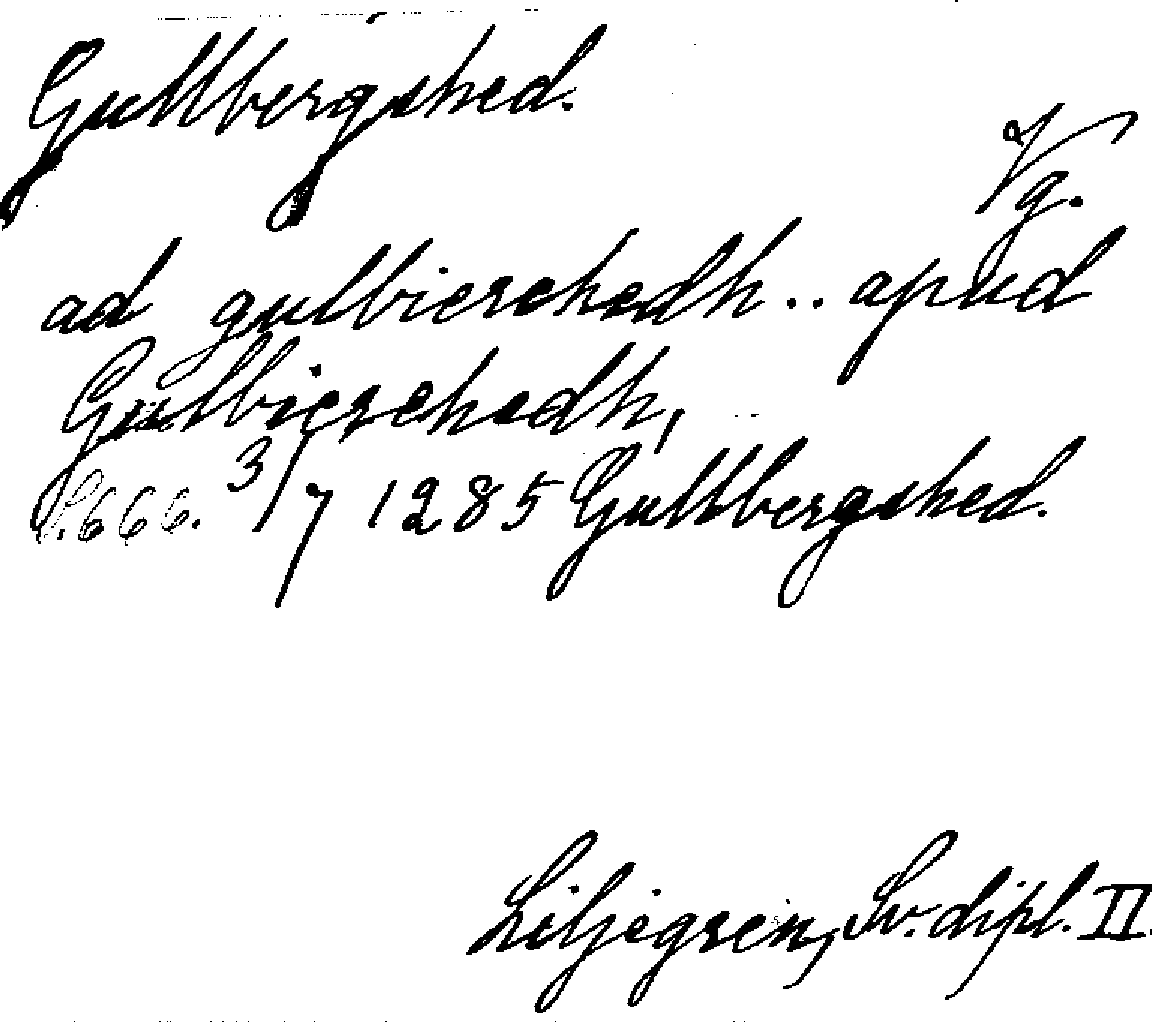 Gullbergshed.
Vg.
ad gulbierchedh.. apud
Gulbierchedh,
S. 666. 3/7 1285 Gullbergshed.
Liljegren, Sv. dipl. II.